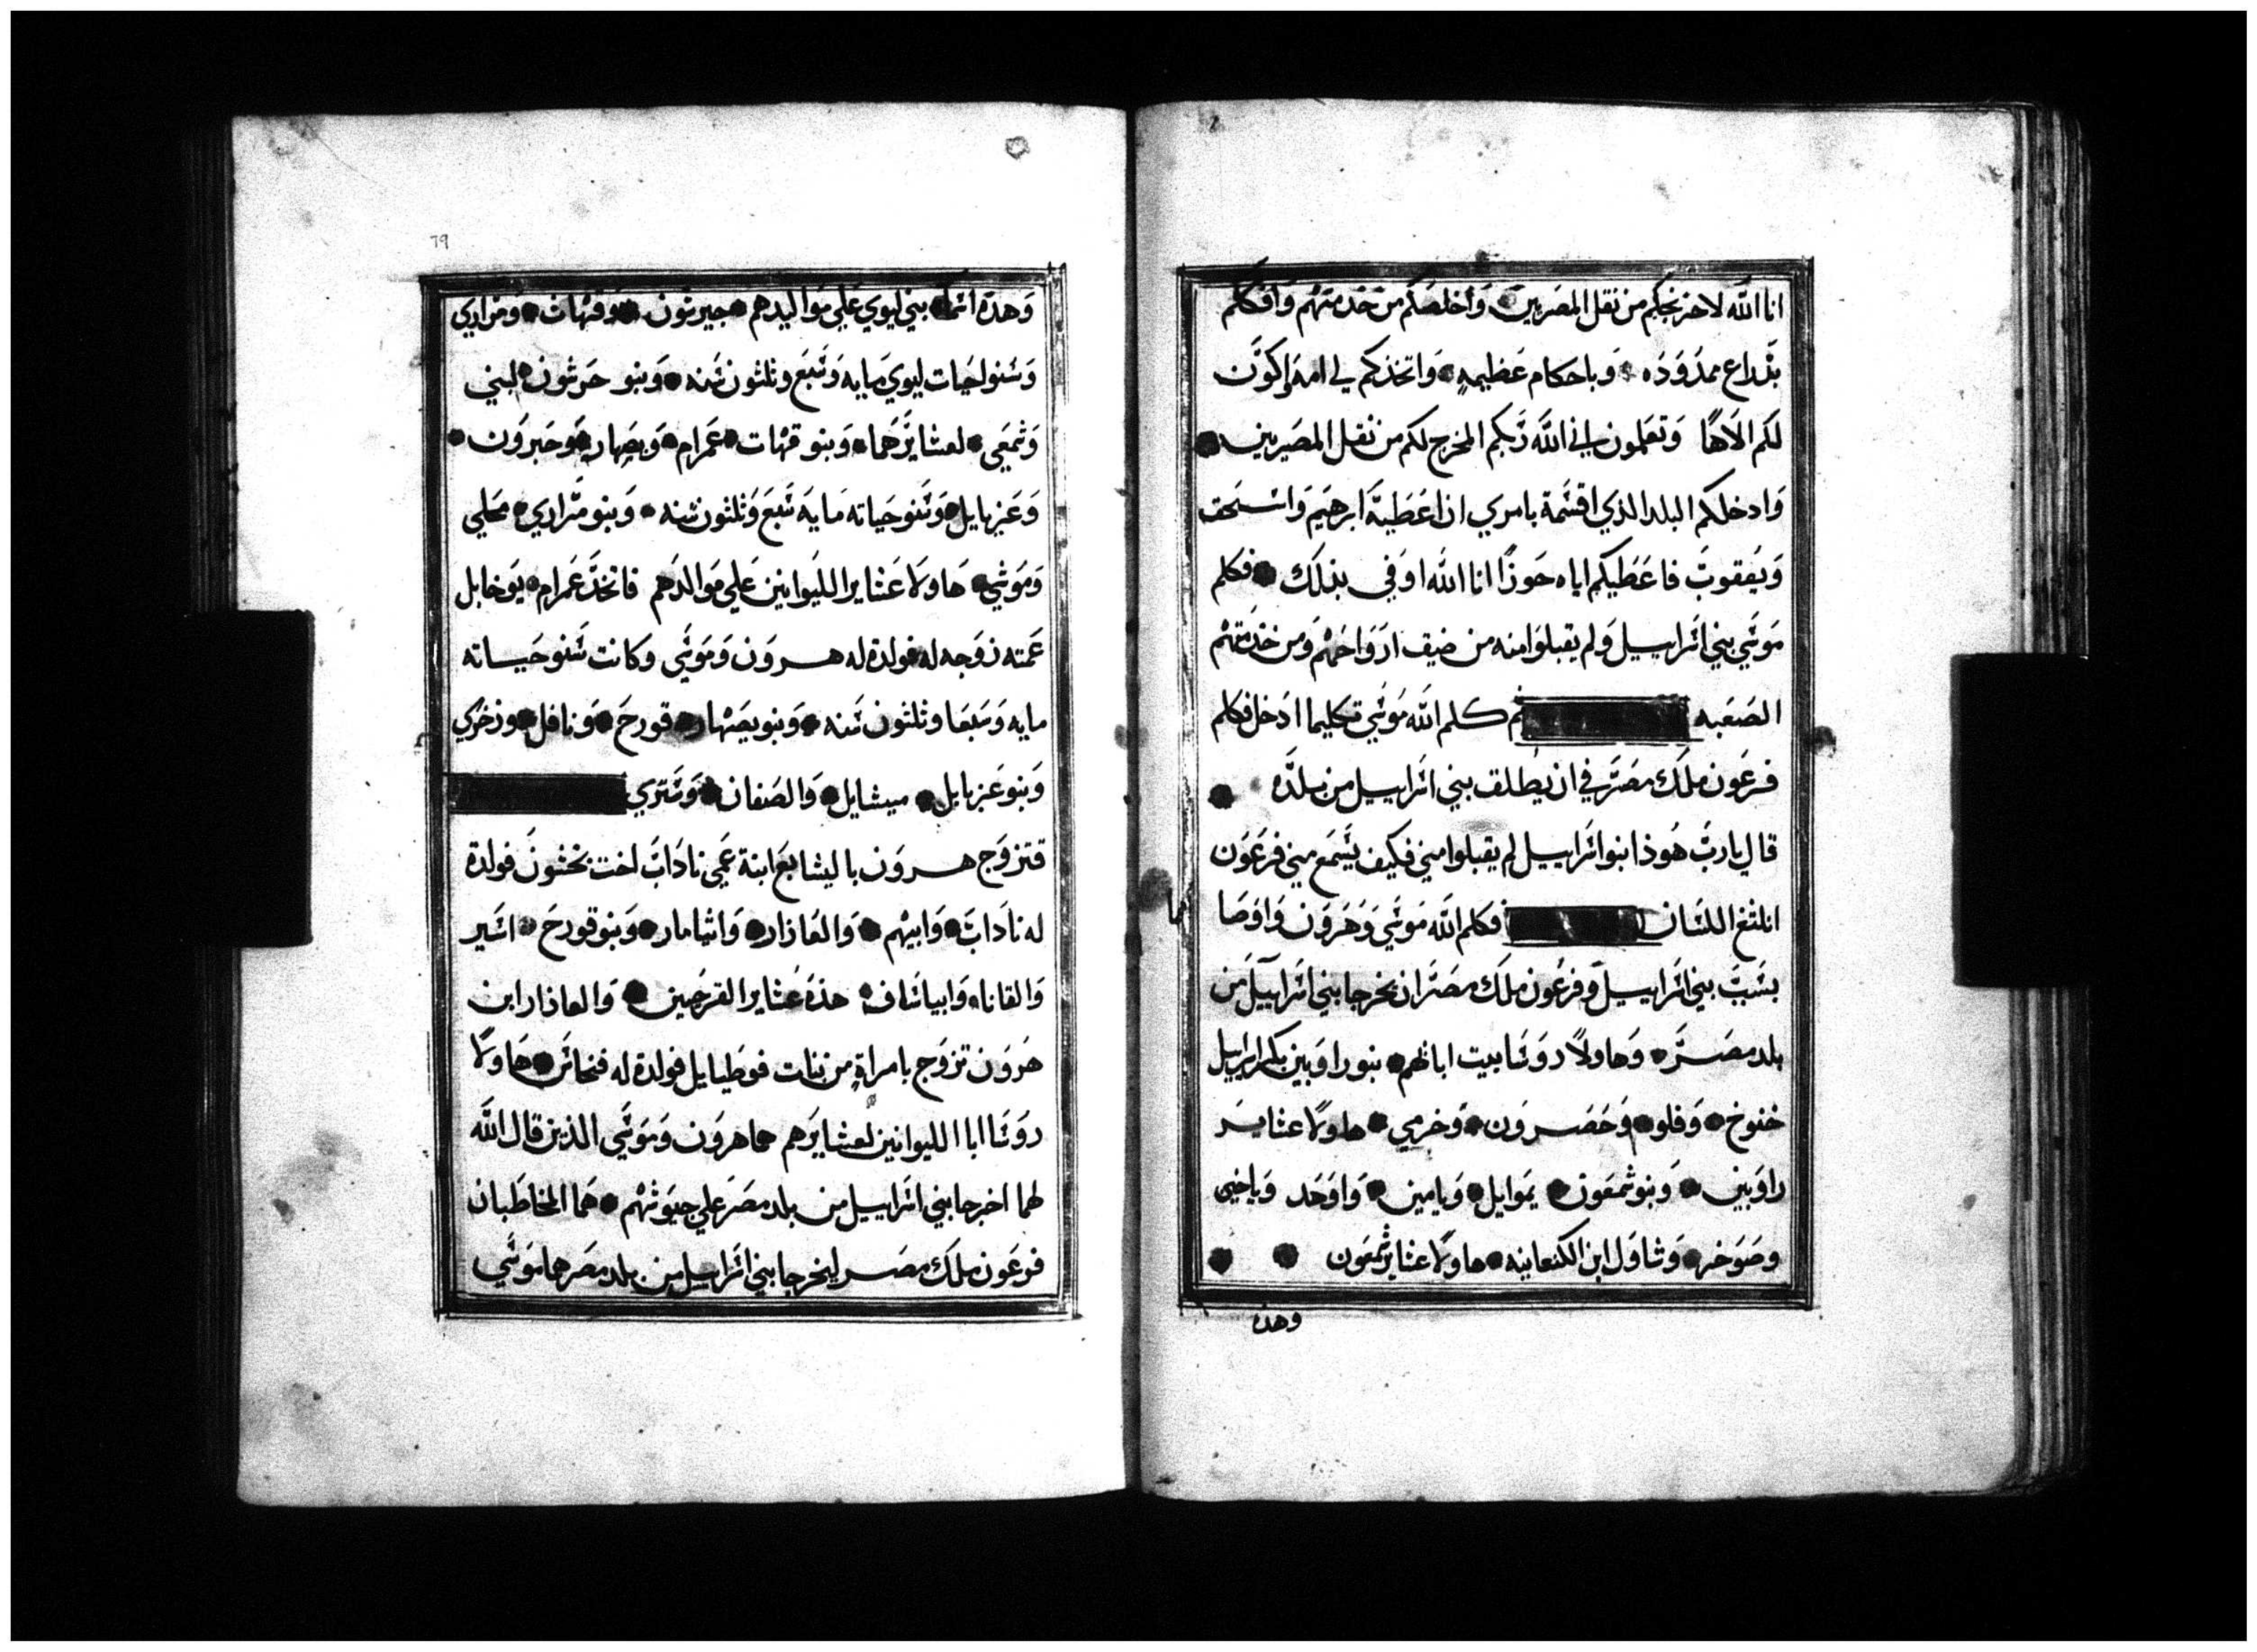 انا الله لاخرنجكم من ثقل المصريين وأخلصكم من خدمتهم وافككم
بذراع ممدوده وباحكام عظيمه واتخذكم لي امه واكون
لكم الاها وتعلمون اني الله ربكم المخرج لكم من ثقل المصريين
وادخلكم البلد الذي اقسمة بامري ان اعطية ابرهيم واسحق
ويعقوب فاعطيكم اياه حوزا انا الله اوفي بذلك فكلم
موسي بني اسراييل ولم يقبلوا منه من ضيق ارواحهم ومن خدمتهم
الصعبه ثم كلم الله موسي تكليما ادخل فكلم
فرعون ملك مصر في ان يطلق بني اسراييل من بلده
قال يارب هوذا بنوا اسراييل لم يقبلوا مني فكيف يسمع مني فرعون
انلثغ اللسان فكلم الله موسي وهرون واوصا
هما
بسبب بني اسراييل وفرعون ملك مصر ان يخرجا بني اسراييل من
بلد مصر وهاولا روسا بيت ابائهم بنو راوبين بكر اسراييل
خنوخ وفلو وحصرون وخرمي هاولا عشاير
راوبين وبنو شمعون يموايل ويامين واوحد وياخين
وصوخر وشاول ابن الكنعانيه هاولا عشاير شمعون
وهذه
79
وهذة اسما بني ليوي علي مواليدهم جيرثون وقهات ومراري
وسنوا حيات ليوي مايه وسبع وثلثون سنه وبنو جرشون لبني
وشمعي لعشايرهما وبنو قهات عمرام ويصهار وحبرون
وعزيايل وسنو حياته مايه سبع وثلثون سنه وبنو مراري محلي
وموشي هاولا عشاير الليوانين علي موالدهم فاتخذ عمرام يوخابل
عمته زوجه له فولدة له هرون وموسي وكانت سنو حياته
مايه وسبعا وثلثون سنه وبنو يصهار قورح ونافل وزخري
وبنو عزيايل ميشايل والصفان وستري
فتزوج هرون باليشابع ابنة عمي ناداب اخت نخشون فولدة
له ناداب وابيهم والعازار واثيامار وبنو قورح اسير
والقانا وابياساف هذه عشاير القرحين والعازار ابن
هرون تزوج بامراة من بنات فوطيايل فولدة له فنحاس هاولا
روسا ابا الليوانين لعشايرهم هما هرون وموسي الذين قال الله
لهما اخرجا بني اسراييل من بلد مصر علي جيوشهم هما المخاطبان
فرعون ملك مصر ليخرجا بني اسراييل من بلد مصر هما موسي